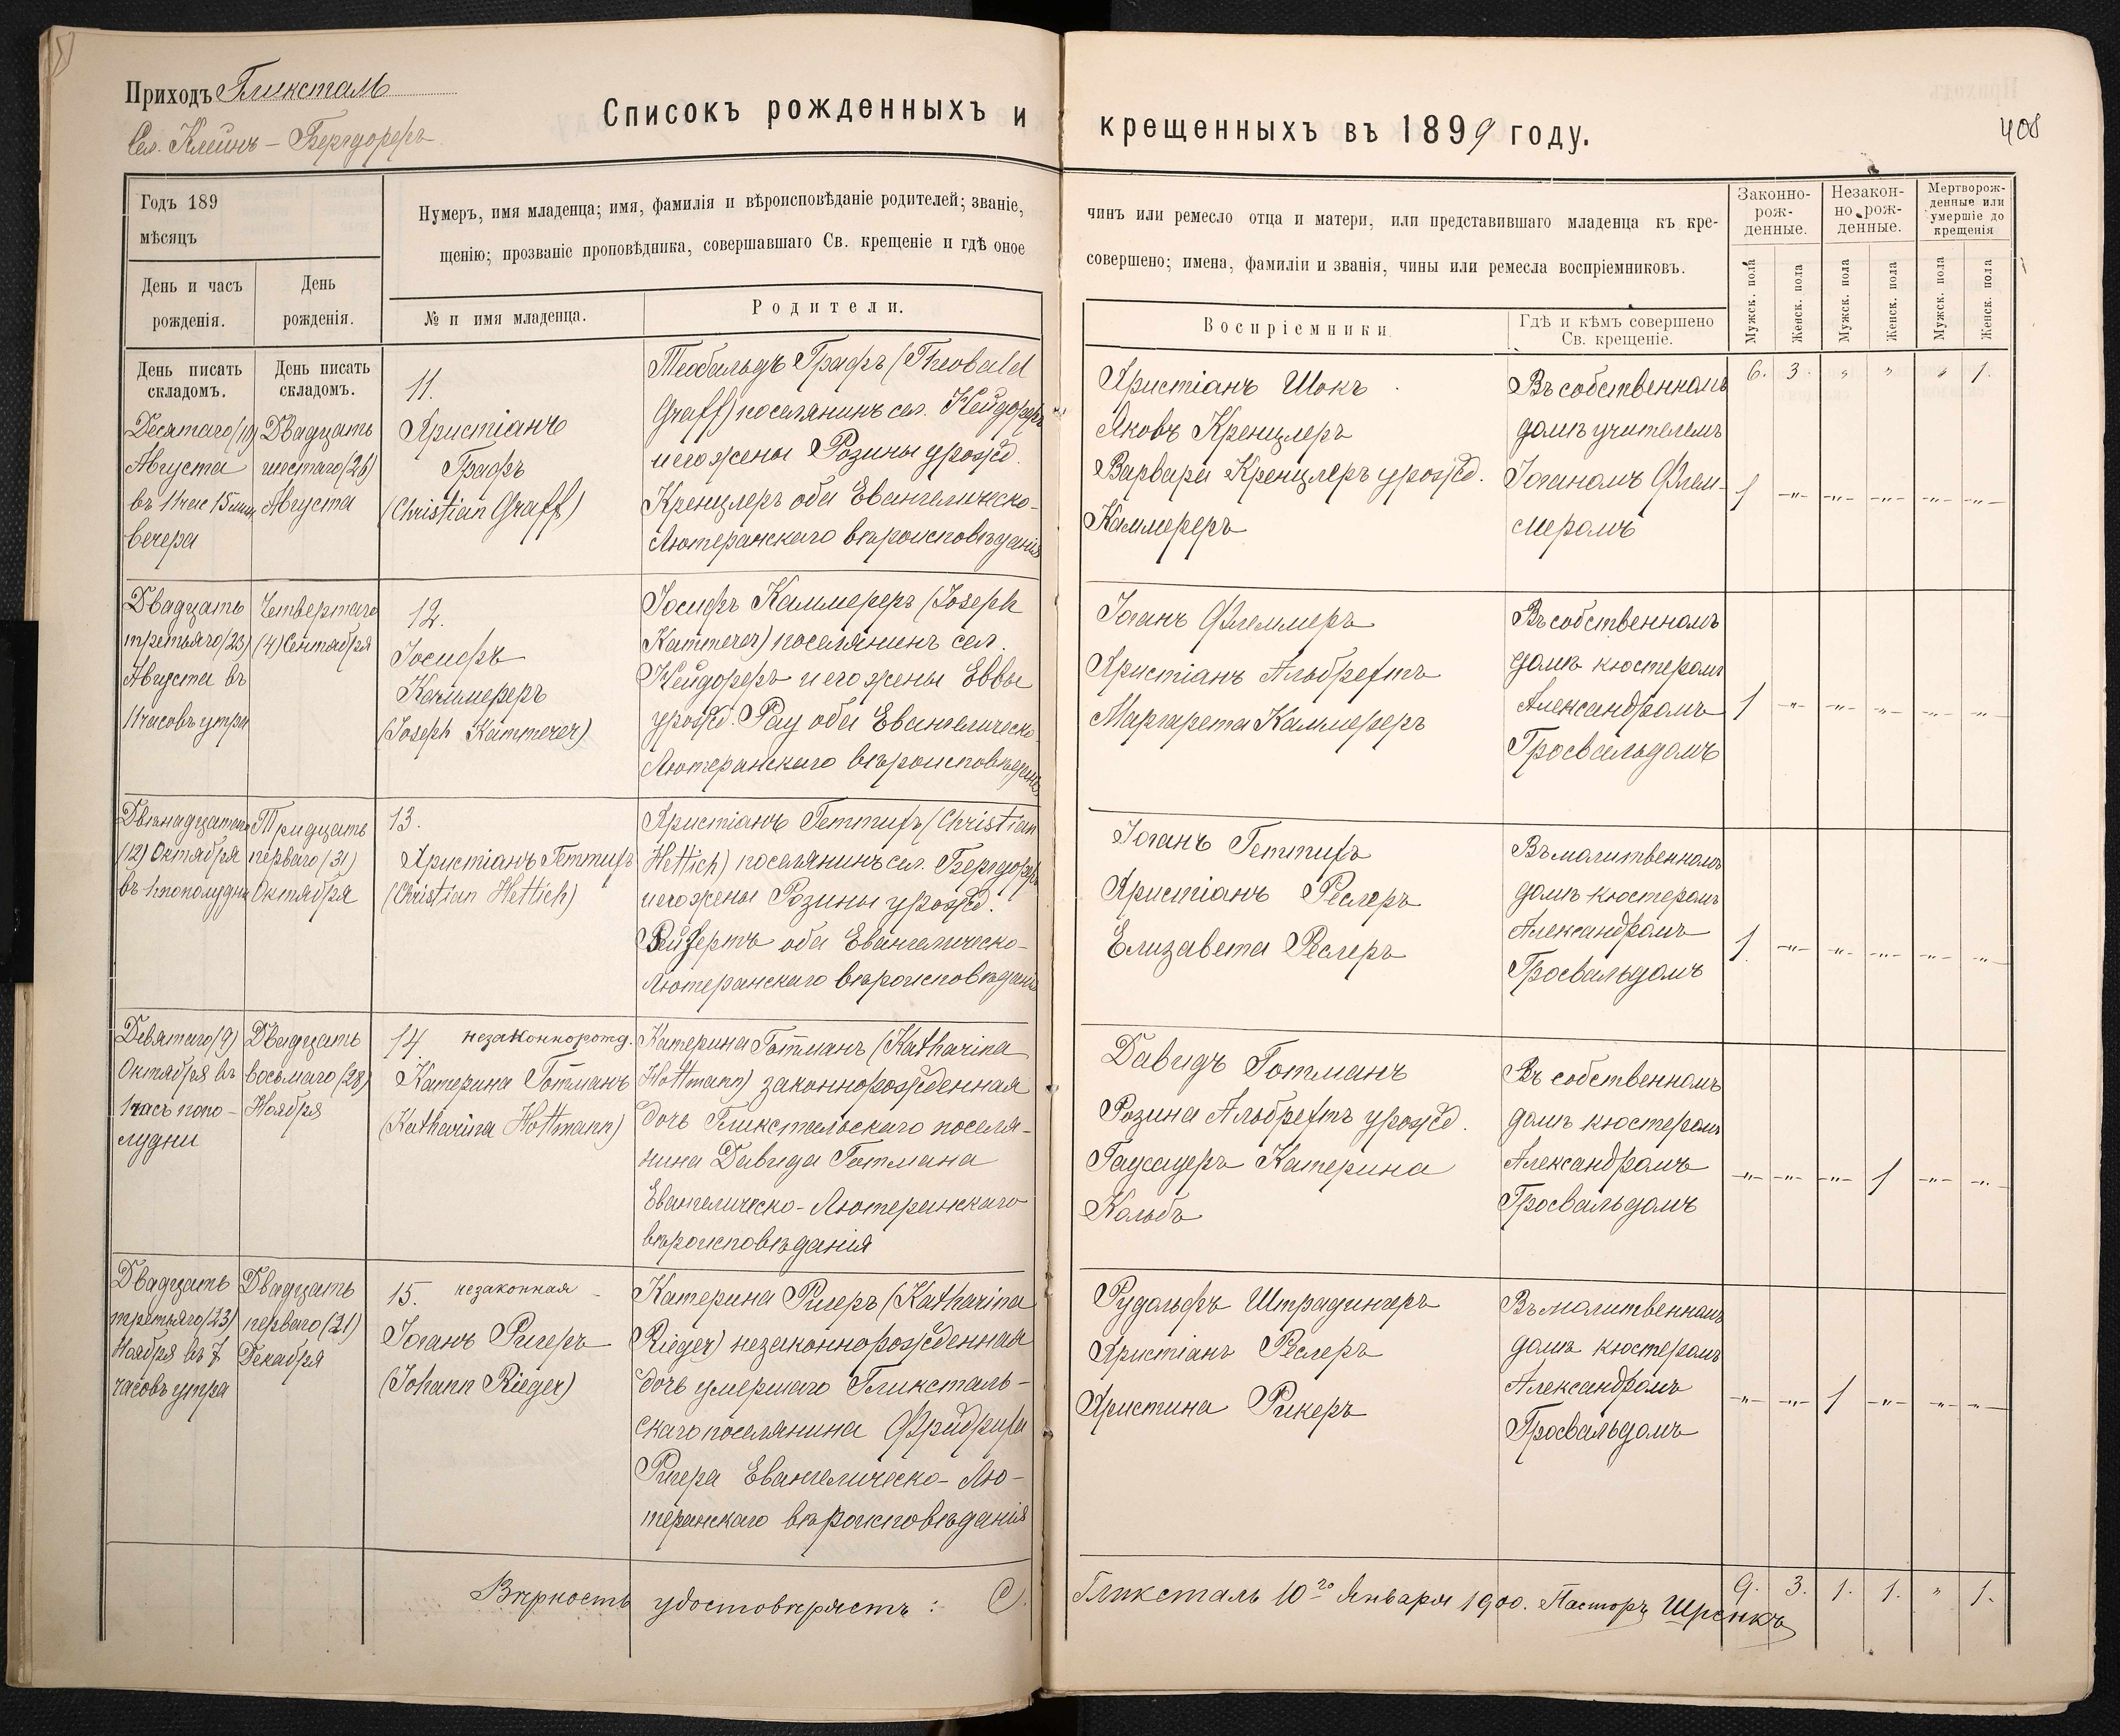 Приходъ Гликсталь
Сел. Клейнъ-Бергдорфъ
Списокъ рожденныхъ и крещенныхъ въ 1899 году.
408
Годъ 189
мѣсяцъ
День и часъ
рожденія.
День
рожденія.
Нумеръ, имя младенца; имя, фамилія и вѣроисповѣданіе родителей; званіе,
щенію; прозваніе проповѣдника, совершавшаго Св. крещеніе и гдѣ оное
№ и имя младенца.
Родители.
чинъ или ремесло отца и матери, или представившаго младенца къ кре-
совершено; имена, фамиліи и званія, чины или ремесла воспріемниковъ.
Воспріемники
Гдѣ и кѣмъ совершено
Св. крещеніе.
Законно-
рож-
денные.
Незакон-
но рож-
денные.
Мертворож-
денные или
умершіе до
крещенія
Мужск. пола
Женск. пола
Мужск. пола
Женск. пола
Мужск. пола
Женск. пола
День писать
складомъ.
День писать
складомъ.
6. 3. " " " 1.
Десятаго (10)
Августа
въ 11 час 15 мин.
вечера
Двадцать
шестаго (26)
Августа
11.
Христіанъ
Графъ
(Christian Graff)
Теобальдъ Графъ (Theobald
Graff) поселянинъ сел. Нейдорфъ
и его жены Розины урожд.
Кренцлеръ оба Евангелическо-
Лютеранскаго вѣроисповѣданія
Христіанъ Шокъ
Яковъ Кренцлеръ
Варвара Кренцлеръ урожд.
Каммереръ
Въ собственномъ
домѣ учителемъ
Іоганомъ Флем-
меромъ
1 -"- -"- -"- -"- -"-
Двадцать
третьяго (23)
Августа въ
11 часовъ утра
Четвертаго
(4) Сентября
12.
Іосифъ
Каммереръ
(Joseph Kammerer)
Іосифъ Каммереръ (Joseph
Kammerer) поселянинъ сел.
Нейдорфъ и его жены Еввы
урожд. Рау оба Евангелическо
Лютеранскаго вѣроисповѣданія
Іоганъ Флеммеръ
Христіанъ Альбрехтъ
Маргарета Каммереръ
Въ собственномъ
домѣ кюстеромъ
Александромъ
Гросвальдомъ
1 -"- -"- -"- -"- -"-
Двѣнадцатаго
(12) Октября
въ 1 пополудни
Тридцать
перваго (31)
Октября
13.
Христіанъ Геттихъ
(Christian Hettich)
Христіанъ Геттихъ (Christian
Hettich) поселянинъ сел. Бергдорфъ
и его жены Розины урожд.
оба Евангелическо-
Лютеранскаго вѣроисповѣданія
Іоганъ Геттихъ
Христіанъ Реслеръ
Елизавета Реслеръ
Въ молитвенномъ
домѣ кюстеромъ
Александромъ
Гросвальдомъ
1. -"- -"- -"- -"- -"-
Девятаго (9)
Октября въ
1 часъ попо-
лудни
Двадцать
восьмаго (28)
Ноября
14. незаконнорожд.
Катерина Готманъ
(Katharina Hottmann)
Катерина Готманъ (Katharina
Hottmann) законнорожденная
дочь Гликстальскаго поселя-
нина Давида Готмана
Евангелическо-Лютеранскаго
вѣроисповѣданія
Давидъ Готманъ
Розина Альбрехтъ урожд.
Гаусауеръ Катерина
Кольбъ
Въ собственномъ
домѣ кюстеромъ
Александромъ
Гросвальдомъ
-"- -"- -"- 1 -"- -"-
Двадцать
третьяго (23)
Ноября въ 7
часовъ утра
Двадцать
перваго (21)
Декабря
15. незаконная
Іоганъ Ригеръ
(Johann Rieger)
Катерина Ригеръ (Katharina
Rieger) незаконнорожденная
дочь умершаго Гликсталь-
скаго поселянина Фридриха
Ригера Евангелическо-Лю-
теранскаго вѣроисповѣданія
Рудольфъ Штрадингеръ
Христіанъ Реслеръ
Христина Рикеръ
Въ молитвенномъ
домѣ кюстеромъ
Александромъ
Гросвальдомъ
-"- -"- 1 -"- -"- -"-
Вѣрность удостовѣряетъ:
Гликсталь 10го Января 1900. Пасторъ Шренкъ
9. 3. 1. 1. " 1.